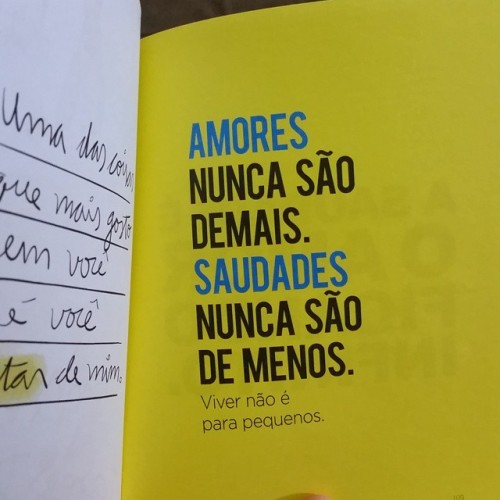 Uma das coisas
que mais gosto
em você
é você
tar de mim.
AMORES
NUNCA SÃO
DEMAIS.
SAUDADES
NUNCA SÃO
DE MENOS.
Viver não é
para pequenos.